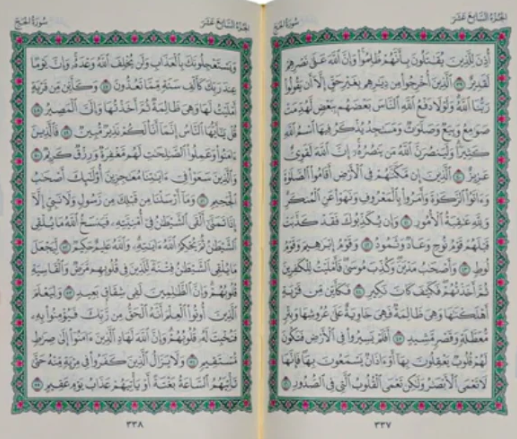 الجُزْءُ السَّابِعَ عَشَرَ سُورَةُ الحَجِّ
أُذِنَ لِلَّذِينَ يُقَٰتَلُونَ بِأَنَّهُمْ ظُلِمُوا۟ وَإِنَّ ٱللَّهَ عَلَىٰ نَصْرِهِمْ
لَقَدِيرٌ ٣٩ ٱلَّذِينَ أُخْرِجُوا۟ مِن دِيَٰرِهِم بِغَيْرِ حَقٍّ إِلَّآ أَن يَقُولُوا۟
رَبُّنَا ٱللَّهُ وَلَوْلَا دَفْعُ ٱللَّهِ ٱلنَّاسَ بَعْضَهُم بِبَعْضٍ لَّهُدِّمَتْ
صَوَٰمِعُ وَبِيَعٌ وَصَلَوَٰتٌ وَمَسَٰجِدُ يُذْكَرُ فِيهَا ٱسْمُ ٱللَّهِ
كَثِيرًا وَلَيَنصُرَنَّ ٱللَّهُ مَن يَنصُرُهُۥٓ إِنَّ ٱللَّهَ لَقَوِىٌّ
عَزِيزٌ ٤٠ ٱلَّذِينَ إِن مَّكَّنَّٰهُمْ فِى ٱلْأَرْضِ أَقَامُوا۟ ٱلصَّلَوٰةَ
وَءَاتَوُا۟ ٱلزَّكَوٰةَ وَأَمَرُوا۟ بِٱلْمَعْرُوفِ وَنَهَوْا۟ عَنِ ٱلْمُنكَرِ
وَلِلَّهِ عَٰقِبَةُ ٱلْأُمُورِ ٤١ وَإِن يُكَذِّبُوكَ فَقَدْ كَذَّبَتْ
قَبْلَهُمْ قَوْمُ نُوحٍ وَعَادٌ وَثَمُودُ ٤٢ وَقَوْمُ إِبْرَٰهِيمَ وَقَوْمُ
لُوطٍ ٤٣ وَأَصْحَٰبُ مَدْيَنَ وَكُذِّبَ مُوسَىٰ فَأَمْلَيْتُ لِلْكَٰفِرِينَ
ثُمَّ أَخَذْتُهُمْ فَكَيْفَ كَانَ نَكِيرِ ٤٤ فَكَأَيِّن مِّن قَرْيَةٍ
أَهْلَكْنَٰهَا وَهِىَ ظَالِمَةٌ فَهِىَ خَاوِيَةٌ عَلَىٰ عُرُوشِهَا وَبِئْرٍ
مُّعَطَّلَةٍ وَقَصْرٍ مَّشِيدٍ ٤٥ أَفَلَمْ يَسِيرُوا۟ فِى ٱلْأَرْضِ فَتَكُونَ
لَهُمْ قُلُوبٌ يَعْقِلُونَ بِهَآ أَوْ ءَاذَانٌ يَسْمَعُونَ بِهَا فَإِنَّهَا
لَا تَعْمَى ٱلْأَبْصَٰرُ وَلَٰكِن تَعْمَى ٱلْقُلُوبُ ٱلَّتِى فِى ٱلصُّدُورِ ٤٦
٣٣٧
الجُزْءُ السَّابِعَ عَشَرَ سُورَةُ الحَجِّ
وَيَسْتَعْجِلُونَكَ بِٱلْعَذَابِ وَلَن يُخْلِفَ ٱللَّهُ وَعْدَهُۥ وَإِنَّ يَوْمًا
عِندَ رَبِّكَ كَأَلْفِ سَنَةٍ مِّمَّا تَعُدُّونَ ٤٧ وَكَأَيِّن مِّن قَرْيَةٍ
أَمْلَيْتُ لَهَا وَهِىَ ظَالِمَةٌ ثُمَّ أَخَذْتُهَا وَإِلَىَّ ٱلْمَصِيرُ ٤٨
قُلْ يَٰٓأَيُّهَا ٱلنَّاسُ إِنَّمَآ أَنَا۠ لَكُمْ نَذِيرٌ مُّبِينٌ ٤٩ فَٱلَّذِينَ
ءَامَنُوا۟ وَعَمِلُوا۟ ٱلصَّٰلِحَٰتِ لَهُم مَّغْفِرَةٌ وَرِزْقٌ كَرِيمٌ ٥٠
وَٱلَّذِينَ سَعَوْا۟ فِىٓ ءَايَٰتِنَا مُعَٰجِزِينَ أُو۟لَٰٓئِكَ أَصْحَٰبُ
ٱلْجَحِيمِ ٥١ وَمَآ أَرْسَلْنَا مِن قَبْلِكَ مِن رَّسُولٍ وَلَا نَبِىٍّ إِلَّآ
إِذَا تَمَنَّىٰٓ أَلْقَى ٱلشَّيْطَٰنُ فِىٓ أُمْنِيَّتِهِۦ فَيَنسَخُ ٱللَّهُ مَا يُلْقِى
ٱلشَّيْطَٰنُ ثُمَّ يُحْكِمُ ٱللَّهُ ءَايَٰتِهِۦ وَٱللَّهُ عَلِيمٌ حَكِيمٌ ٥٢ لِّيَجْعَلَ
مَا يُلْقِى ٱلشَّيْطَٰنُ فِتْنَةً لِّلَّذِينَ فِى قُلُوبِهِم مَّرَضٌ وَٱلْقَاسِيَةِ
قُلُوبُهُمْ وَإِنَّ ٱلظَّٰلِمِينَ لَفِى شِقَاقٍۭ بَعِيدٍ ٥٣ وَلِيَعْلَمَ
ٱلَّذِينَ أُوتُوا۟ ٱلْعِلْمَ أَنَّهُ ٱلْحَقُّ مِن رَّبِّكَ فَيُؤْمِنُوا۟ بِهِۦ
فَتُخْبِتَ لَهُۥ قُلُوبُهُمْ وَإِنَّ ٱللَّهَ لَهَادِ ٱلَّذِينَ ءَامَنُوٓا۟ إِلَىٰ صِرَٰطٍ
مُّسْتَقِيمٍ ٥٤ وَلَا يَزَالُ ٱلَّذِينَ كَفَرُوا۟ فِى مِرْيَةٍ مِّنْهُ حَتَّىٰ
تَأْتِيَهُمُ ٱلسَّاعَةُ بَغْتَةً أَوْ يَأْتِيَهُمْ عَذَابُ يَوْمٍ عَقِيمٍ ٥٥
٣٣٨